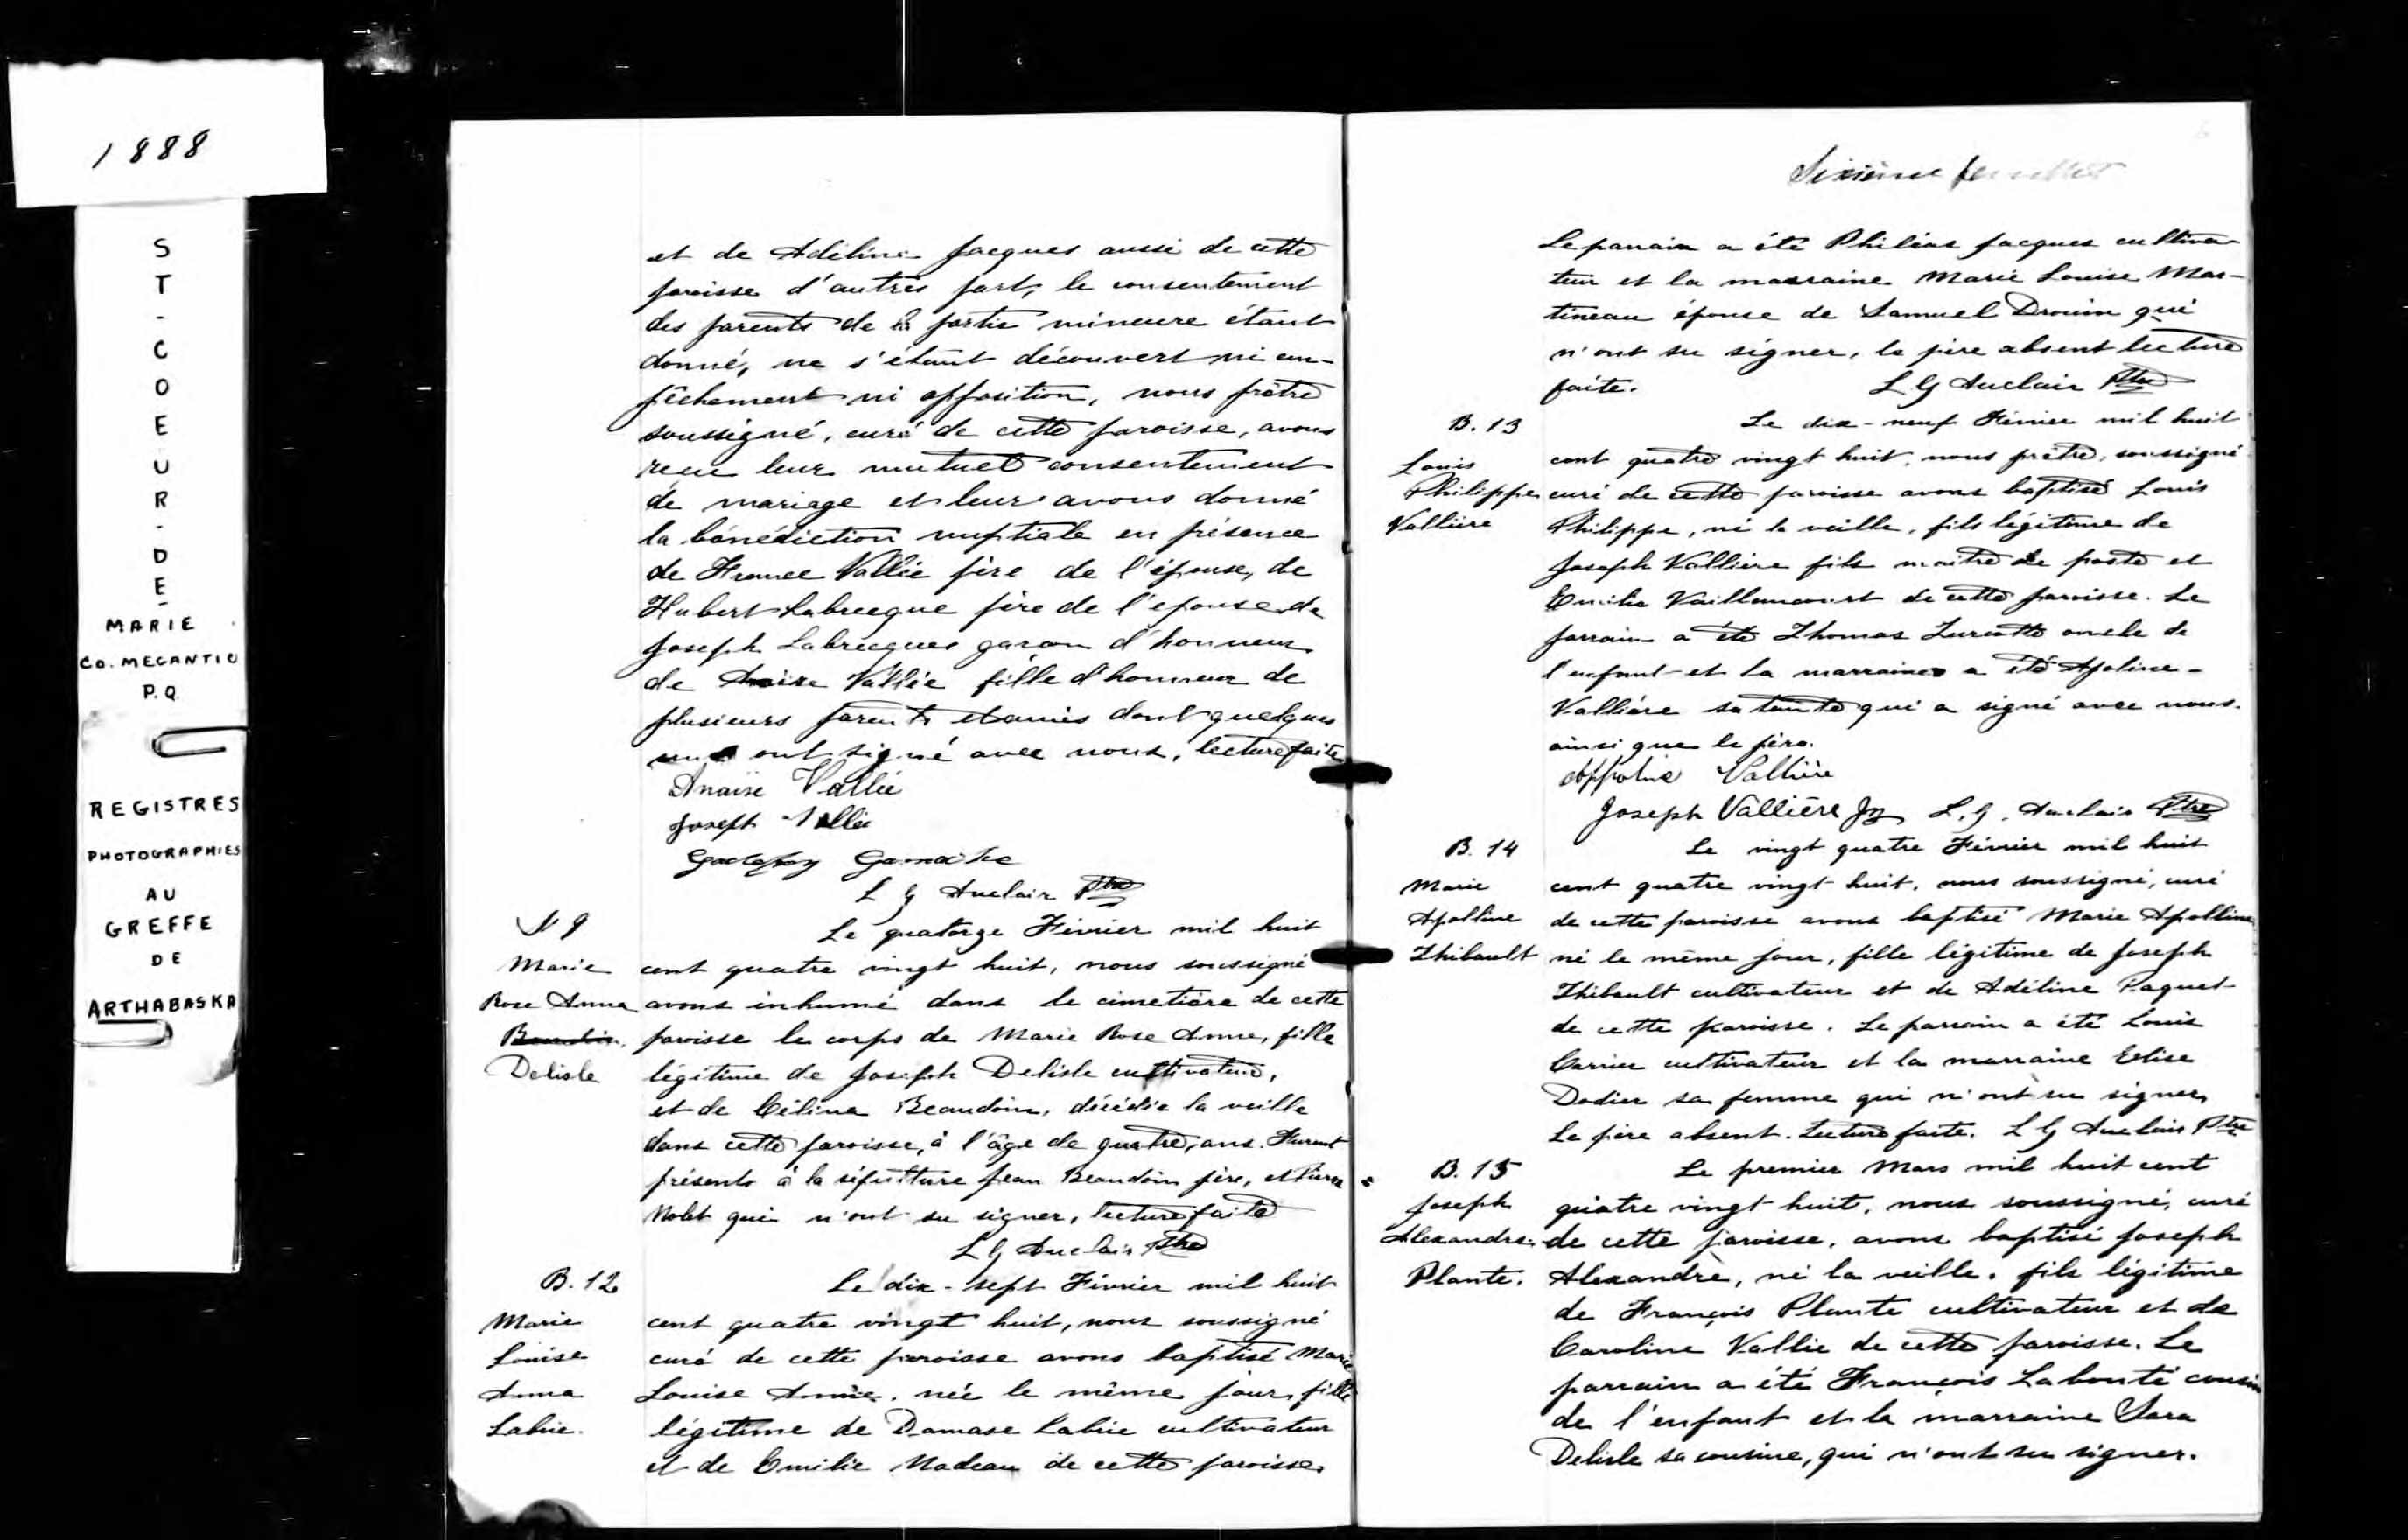 1888
ST-COEUR-DE
MARIE
CO. MEGANTIC
P.Q.
REGISTRES
PHOTOGRAPHIES
AU
GREFFE
DE
ARTHABASKA
et de Adéline Jacques aussi de cette
paroisse d'autres part, le consentement
des parents de la partie mineure étant
donné, ne s'étant découvert ni em-
pêchement ni opposition, nous prêtre
soussigné, curé de cette paroisse, avons
reçu leur mutuel consentement
de mariage et leur avons donné
la bénédiction nuptiale en présence
de France Vallée père de l'épouse, de
Hubert Labrecque père de l'epouse de
Joseph Labrecques garçon d'honneur
de Vallée fille d'honneur de
plusieurs parents et amis dont quelques
uns ont signé avec nous, lecture faite
Anaïse Vallée
Joseph Vallée
L G Auclair Ptre
N 9
Marie
Rose Anna
Beaudoin
Delisle
Le quatorze Février mil huit
cent quatre vingt huit, nous soussigné
avons inhumé dans le cimetière de cette
paroisse le corps de Marie Rose Anna, fille
légitime de Joseph Delisle cultivateur,
et de Céline Beaudoin, décédée la veille
dans cette paroisse, à l'âge de quatre ans. Furent
présents à la sépulture Jean Beaudoin père, et Pierre
Nolet qui n'ont su signer, lecture faite
L G Auclair Ptre
B. 12
Marie
Louise
Anna
Labrie.
Le dix-sept Février mil huit
cent quatre vingt huit, nous soussigné
curé de cette paroisse avons baptisé Marie
Louise Anna, née le même jour, fille
légitime de Damase Labrie cultivateur
et de Emilie Nadeau de cette paroisse.
Sixième feuillet
Le parrain a été Philéas Jacques cultiva-
teur et la marraine Marie Louise Mar-
tineau épouse de Samuel Drouin qui
n'ont su signer, le père absent lecture
faite. L G Auclair Ptre
B. 13
Louis
Philippe
Vallière
Le dix-neuf Février mil huit
cent quatre vingt huit, nous prêtre, soussigné
curé de cette paroisse avons baptisé Louis
Philippe, né la veille, fils légitime de
Joseph Vallière fils maître de poste et
Emilie Vaillancourt de cette paroisse. Le
parrain a été Thomas Turcotte oncle de
l'enfant et la marraine a été Apoline
Vallière sa tante qui a signé avec nous
ainsi que le père.
Appoline Vallière
Joseph Vallière Jr L. G. Auclair Ptre
B. 14
Marie
Apolline
Thibault
Le vingt quatre Février mil huit
cent quatre vingt huit, nous soussigné, curé
de cette paroisse avons baptisé Marie Apolline
né le même jour, fille légitime de Joseph
Thibault cultivateur et de Adéline Paquet
de cette paroisse. Le parrain a été Louis
Carrier cultivateur et la marraine Elise
Dodier sa femme qui n'ont su signer,
Le père absent. Lecture faite. L G Auclair Ptre
B. 15
Joseph
Alexandre
Plante.
Le premier Mars mil huit cent
quatre vingt huit, nous soussigné, curé
de cette paroisse, avons baptisé Joseph
Alexandre, né la veille, fils légitime
de François Plante cultivateur et de
Caroline Vallée de cette paroisse. Le
parrain a été François Labonté cousin
de l'enfant et la marraine Sara
Delisle sa cousine, qui n'ont su signer.